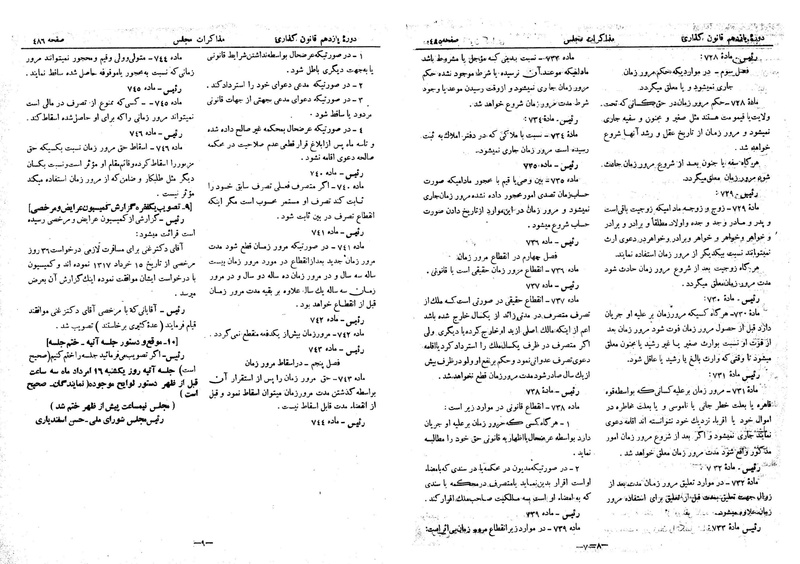 دورهٔ یازدهم قانون گذاری
مذاکرات مجلس
صفحه ۴۸۵
رئیس - مادهٔ ۷۲۸:
فصل سوم - در مواردیکه حکم مرور زمان
جاری نمیشود و یا معلق میگردد
مادهٔ ۷۲۸ - حکم مرور زمان در حق کسانی که تحت
ولایت یا قیمومت هستند مثل صغیر و مجنون و سفیه جاری
نمیشود و مرور زمان از تاریخ عقل و رشد آنها شروع
خواهد شد.
هرگاه سفه یا جنون بعد از شروع مرور زمان حادث
شود مرور زمان معلق میگردد.
رئیس - ۷۲۹:
مادهٔ ۷۲۹ - زوج و زوجه مادامیکه زوجیت باقی است
و پدر و مادر وجد و جده و اولاد مطلقاً و برادر و برادر
و خواهر و خواهر و خواهر و برادر و خواهر در دعوی ارث
نمیتوانند نسبت بیکدیگر از مرور زمان استفاده نمایند.
هرگاه زوجیت بعد از شروع مرور زمان حادث شود
مدت مرور زمان معلق میگردد.
رئیس - مادهٔ ۷۳۰:
مادهٔ ۷۳۰ - هرگاه کسیکه مرور زمان بر علیه او جریان
دارد قبل از حصول مرور زمان فوت شود مرور زمان بعد
از فوت او نسبت بوارث صغیر یا غیر رشید یا مجنون معلق
میشود تا وقتی که وارث بالغ یا رشید یا عاقل شود.
رئیس - مادهٔ ۷۳۱:
مادهٔ ۷۳۱ - مرور زمان بر علیه کسانی که بواسطه قوه
قاهره یا بعلت خطر جانی یا ناموسی و یا بعلت مخاطره در
اموال خود یا اقرباء نزدیک خود نتوانسته اند اقامه دعوی
نمایند جاری نمیشود و اگر بعد از شروع مرور زمان امور
مذکور واقع شود مدت مرور زمان معلق خواهد شد.
رئیس - مادهٔ ۷۳۲:
مادهٔ ۷۳۲ - در موارد تعلیق مرور زمان مدت بعد از
زوال جهت تعلیق بمدت قبل از تعلیق برای استفاده مرور
زمان علاوه میشود.
رئیس - مادهٔ ۷۳۳:
ماده ۷۳۳ - نسبت بدینی که مؤجل یا مشروط باشد
مادامیکه موعد آن نرسیده یا شرط موجود نشده حکم
مرور زمان جاری نمیشود و از وقت رسیدن موعد یا وجود
شرط مدت مرور زمان شروع خواهد شد.
رئیس - ماده ۷۳۴:
مادهٔ ۷۳۴ - نسبت با ملاکی که در دفتر املاک به ثبت
رسیده است مرور زمان جاری نمیشود.
رئیس - ماده ۷۳۵
ماده ۷۳۵ - بین وصی یا قیم با محجور مادامیکه صورت
حساب زمان تصدی امور محجور داده نشده مرور زمان جاری
نمیشود و مرور زمان در این موارد از تاریخ دادن صورت
حساب شروع میشود.
رئیس - ماده ۷۳۶
فصل چهارم در انقطاع مرور زمان
ماده ۷۳۶ - انقطاع مرور زمان حقیقی است یا قانونی.
رئیس - ماده ۷۳۷
ماده ۷۳۷ - انقطاع حقیقی در صورتی است که ملک از
تصرف متصرف در مدتی زائد از یکسال خارج شده باشد
اعم از اینکه مالک اصلی ازید او خارج کرده یا دیگری ولی
اگر متصرف در ظرف یکسال ملک را استرداد کرد یا اقامه
دعوی تصرف عدوانی نمود و حکم بر نفع او ولو در ظرف بیش
از یکسال صادر شود مدت مرور زمان قطع نخواهد شد.
رئیس - ماده ۷۳۸
ماده ۷۳۸ - انقطاع قانونی در موارد زیر است:
۱ - هرگاه کسی که مرور زمان بر علیه او جریان
دارد بواسطه عرضحال یا اظهاریه قانونی حق خود را مطالبه
نماید.
۲ - در صورتیکه مدیون در محکمه یا در سندی که بامضاء
او است اقرار بدین نماید یا متصرف در محکمه یا سندی
که به امضاء او است به مالکیت صاحب ملک اقرار کند.
رئیس - ماده ۷۳۹
ماده ۷۳۹ - در موارد زیر انقطاع مرور زمان بی اثر است:
—۸=۷—
دورهٔ یازدهم قانون گذاری
مذاکرات مجلس
صفحه ۴۸۶
۱ - در صورتیکه عرضحال بواسطه نداشتن شرایط قانونی
یا به جهت دیگری باطل شود.
۲ - در صورتیکه مدعی دعوای خود را استرداد کند.
۳ - در صورتیکه دعوای مدعی بجهتی از جهات قانونی
مردود یا ساقط شود.
۴ - در صورتیکه عرضحال بمحکمه غیر صالح داده شده
و تا سه ماه پس از ابلاغ قرار قطعی عدم صلاحیت در محکمه
صالحه دعوی اقامه نشود.
رئیس - ماده ۷۴۰
ماده ۷۴۰ - اگر متصرف فعلی تصرف سابق خود را
ثابت کند تصرف او مستمر محسوب است مگر اینکه
انقطاع تصرف در بین ثابت شود.
رئیس - ماده ۷۴۱
ماده ۷۴۱ - در صورتیکه مرور زمان قطع شود مدت
مرور زمان جدید بعد از انقطاع در مورد مرور زمان بیست
ساله سه سال و در مرور زمان ده ساله دو سال و در مرور
زمان سه ساله یک سال علاوه بر بقیه مدت مرور زمان
قبل از انقطاع خواهد بود.
رئیس - ماده ۷۴۲
ماده ۷۴۲ - مرور زمان بیش از یکدفعه قطع نمی گردد.
رئیس - ماده ۷۴۳
فصل پنجم - در اسقاط مرور زمان
ماده ۷۴۳ - حق مرور زمان را پس از استقرار آن
بواسطه گذشتن مدت مرور زمان میتوان اسقاط نمود و قبل
از انقضاء مدت قابل اسقاط نیست.
رئیس - ماده ۷۴۴
ماده ۷۴۴ - متولی وولی وقیم ومحجور نمیتواند مرور
زمانی که نسبت به محجور یا موقوفه حاصل شده ساقط نمایند.
رئیس - ماده ۷۴۵
ماده ۷۴۵ - کسی که ممنوع از تصرف در مالی است
نمیتواند مرور زمانی را که برای او حاصل شده اسقاط کند.
رئیس - ماده ۷۴۶
ماده ۷۴۶ - اسقاط حق مرور زمان نسبت بکسی که حق
مزبور را اسقاط کرده و قائم مقام او مؤثر است و نسبت بکسان
دیگر مثل طلبکار و ضامن که از مرور زمان استفاده میکند
مؤثر نیست.
[۹ - تصویب یکفقره گزارش کمیسیون عرایض و مرخصی]
رئیس - گزارش از کمیسیون عرایض و مرخصی رسیده
است قرائت میشود:
آقای دکتر غنی برای مسافرت لازمی درخواست ۳۶ روز
مرخصی از تاریخ ۱۵ خرداد ۱۳۱۷ نموده اند و کمیسیون
با درخواست ایشان موافقت نموده اینک گزارش آن بعرض
میرسد.
رئیس - آقایانی که با مرخصی آقای دکتر غنی موافقند
قیام فرمایند (عده کثیری برخاستند) تصویب شد.
[۱۰ - موقع و دستور جلسه آتیه - ختم جلسه]
رئیس - اگر تصویب میفرمائید جلسه را ختم کنیم (صحیح
است) جلسه آتیه روز یکشنبه ۱۶ امرداد ماه سه ساعت
قبل از ظهر دستور لوایح موجوده (نمایندگان - صحیح
است)
(مجلس نیمساعت پیش از ظهر ختم شد)
رئیس مجلس شورای ملی - حسن اسفندیاری
—۹—